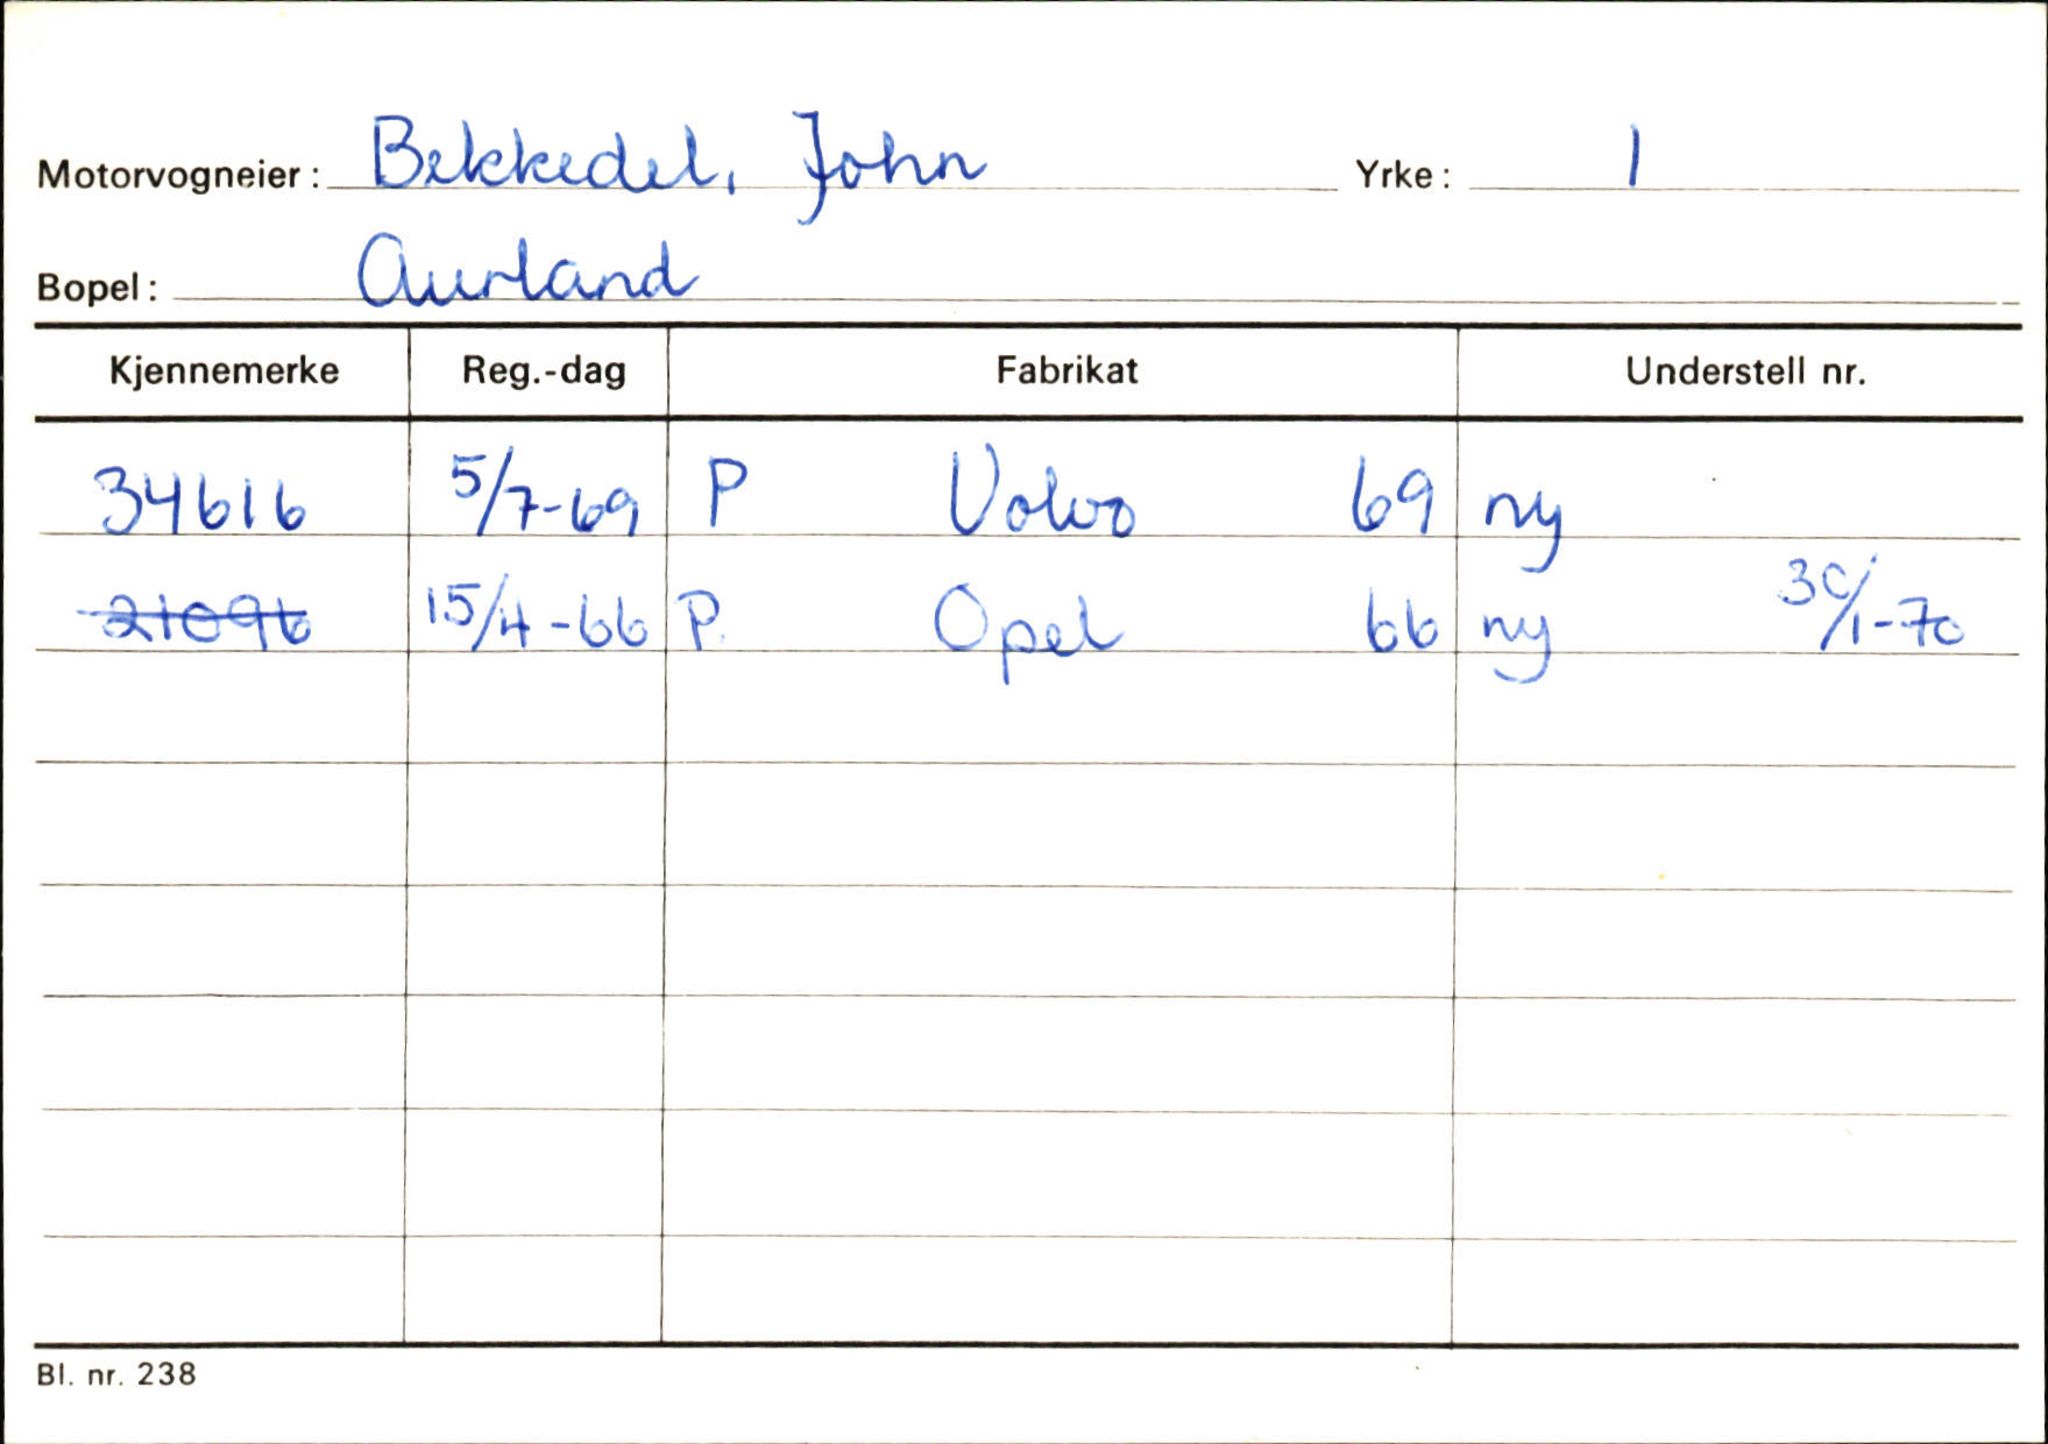 Motorvogneier: Bekkedel, John Yrke: 1
Bopel: Aurland
Kjennemerke Reg.-dag Fabrikat Understell nr.
34616 5/7-69 P Volvo 69 ny
21096 15/4-66 P. Opel 66 ny 30/1-70
Bl. nr. 238